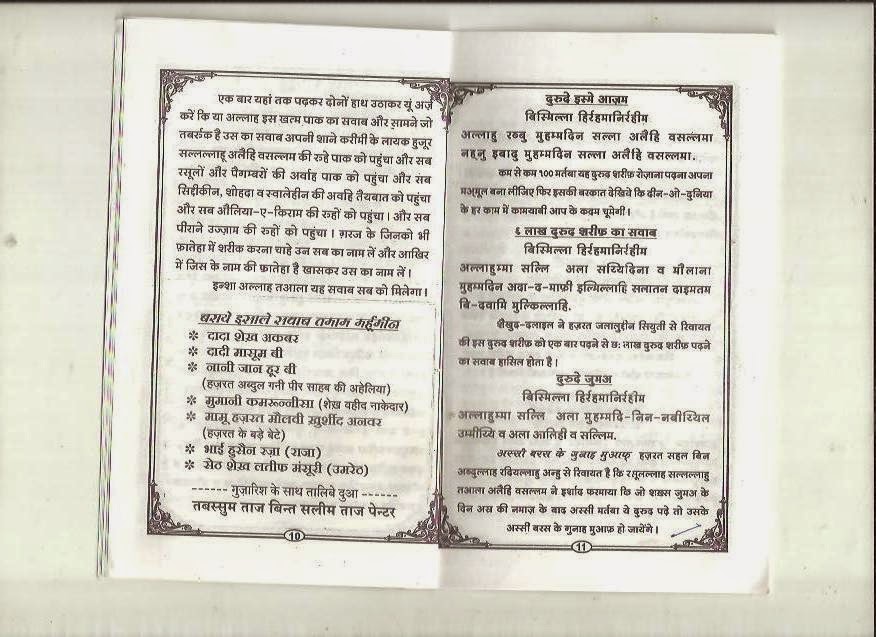 एक बार यहां तक पढ़कर दोनों हाथ उठाकर यूं अर्ज़
करें कि या अल्लाह इस खत्म पाक का सवाब और सामने जो
तबर्रुक है उस का सवाब अपनी शाने करीमी के लायक हुजूर
सल्लल्लाहू अलैहि वसल्लम की रुहे पाक को पहुंचा और सब
रसूलों और पैगम्बरों की अर्वाह पाक को पहुंचा और सब
सिद्दीकीन, शोहदा व स्वालेहीन की अर्वाहे तैयबात को पहुंचा
और सब औलिया-ए-किराम की रुहों को पहुंचा । और सब
पीराने उज़्ज़ाम की रुहों को पहुंचा । ग़रज के जिनको भी
फ़ातेहा में शरीक करना चाहे उन सब का नाम लें और आखिर
में जिस के नाम की फ़ातेहा है खासकर उस का नाम लें ।
इन्शा अल्लाह तआला यह सवाब सब को मिलेगा ।
बराये इसाले सवाब तमाम मर्हूमीन
* दादा शेख़ अकबर
* दादी मासूम बी
* नानी जान हूर बी
(हज़रत अब्दुल गनी पीर साहब की अहेलिया)
* मुमानी कमरून्नीसा (शेख़ वहीद नाकेदार)
* मामू हज़रत मौलवी खुर्शीद अनवर
(हज़रत के बड़े बेटे)
* भाई हुसैन रज़ा (राजा)
* सेठ शेख़ लतीफ़ मंसूरी (उमरेठ)
------ गुज़ारिश के साथ तालिबे दुआ ------
तबस्सुम ताज बिन्त सलीम ताज पेन्टर
10
दुरुदे इस्मे आज़म
बिस्मिल्ला हिर्रहमानिर्रहीम
अल्लाहु रब्बु मुहम्मदिन सल्ला अलैहि वसल्लमा
नहनु इबादु मुहम्मदिन सल्ला अलैहि वसल्लमा.
कम से कम १०० मर्तबा यह दुरुद शरीफ़ रोज़ाना पढ़ना अपना
मअमूल बना लीजिए फिर इसकी बरकात देखिये कि दीन-ओ-दुनिया
के हर काम में कामयाबी आप के कदम चूमेगी ।
६ लाख दुरुद शरीफ़ का सवाब
बिस्मिल्ला हिर्रहमानिर्रहीम
अल्लाहुम्मा सल्लि अला सय्यिदिना व मौलाना
मुहम्मदिन अदा-द-माफ़ी इल्मिल्लाहि सलातन दाइमतम
बि-दवामि मुल्किल्लाहि.
शैखुद-दलाइल ने हज़रत जलालुद्दीन सियुती से रिवायत
की इस दुरुद शरीफ़ को एक बार पढ़ने से छः लाख दुरुद शरीफ़ पढ़ने
का सवाब हासिल होता है ।
दुरुदे जुमअ
बिस्मिल्ला हिर्रहमानिर्रहीम
अल्लाहुम्मा सल्लि अला मुहम्मदि-निन-नबीय्यिल
उम्मीय्यि व अला आलिही व सल्लिम.
अस्सी बरस के गुनाह मुआफ़ हज़रत सहल बिन
अब्दुल्लाह रदियल्लाहु अन्हु से रिवायत है कि रसूलल्लाह सल्लल्लाहु
तआला अलैहि वसल्लम ने इर्शाद फ़रमाया कि जो शख़्स जुमअ के
दिन अस्र की नमाज़ के बाद अस्सी मर्तबा ये दुरुद पढ़े तो उसके
अस्सी बरस के गुनाह मुआफ़ हो जायेंगे ।
11